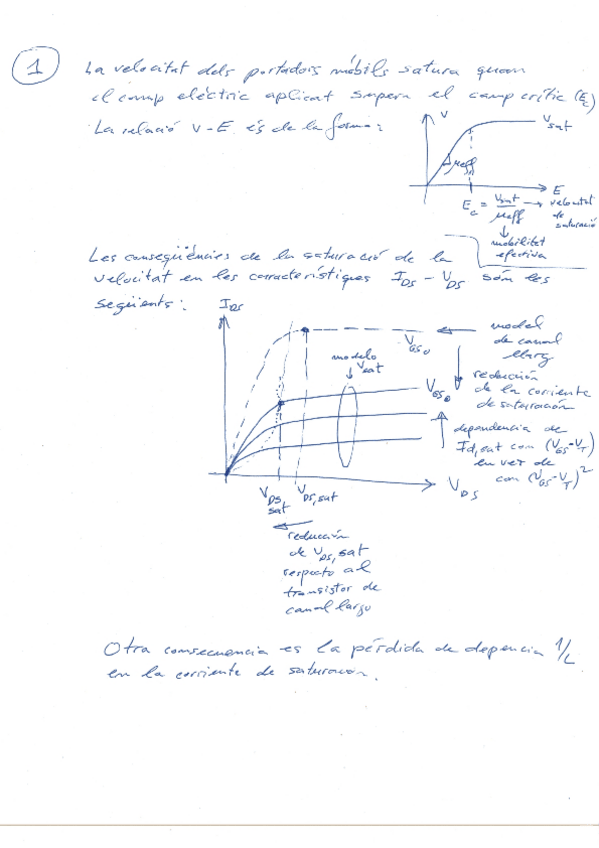 1
La velocitat dels portadors mòbils satura quan
el camp elèctric aplicat supera el camp crític (Ec)
La relació v-E és de la forma:
v
vsat
μeff
E
Ec = vsat/μeff → velocitat
de
saturació
↓
mobilitat
efectiva
Les conseqüències de la saturació de la
velocitat en les característiques IDS - VDS són les
següents:
IDS
VGS0
model
de canal
llarg
modelo
vsat
VGS0
reducción
de la corriente
de saturación
dependencia de
Id,sat con (VGS-VT)
en vez de
con (VGS-VT)²
VDS
VDS,
sat
VDS,sat
reducción
de VDS,sat
respecto al
transistor de
canal largo
Otra consecuencia es la pérdida de depencia 1/L
en la corriente de saturación.